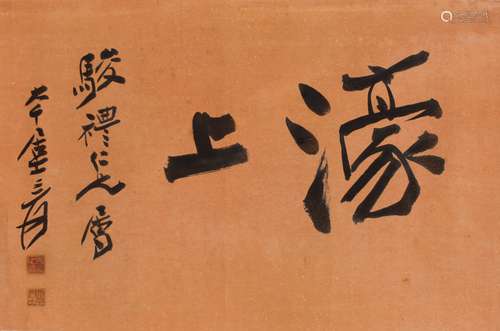 濠上
駿禮仁兄屬
大千張爰